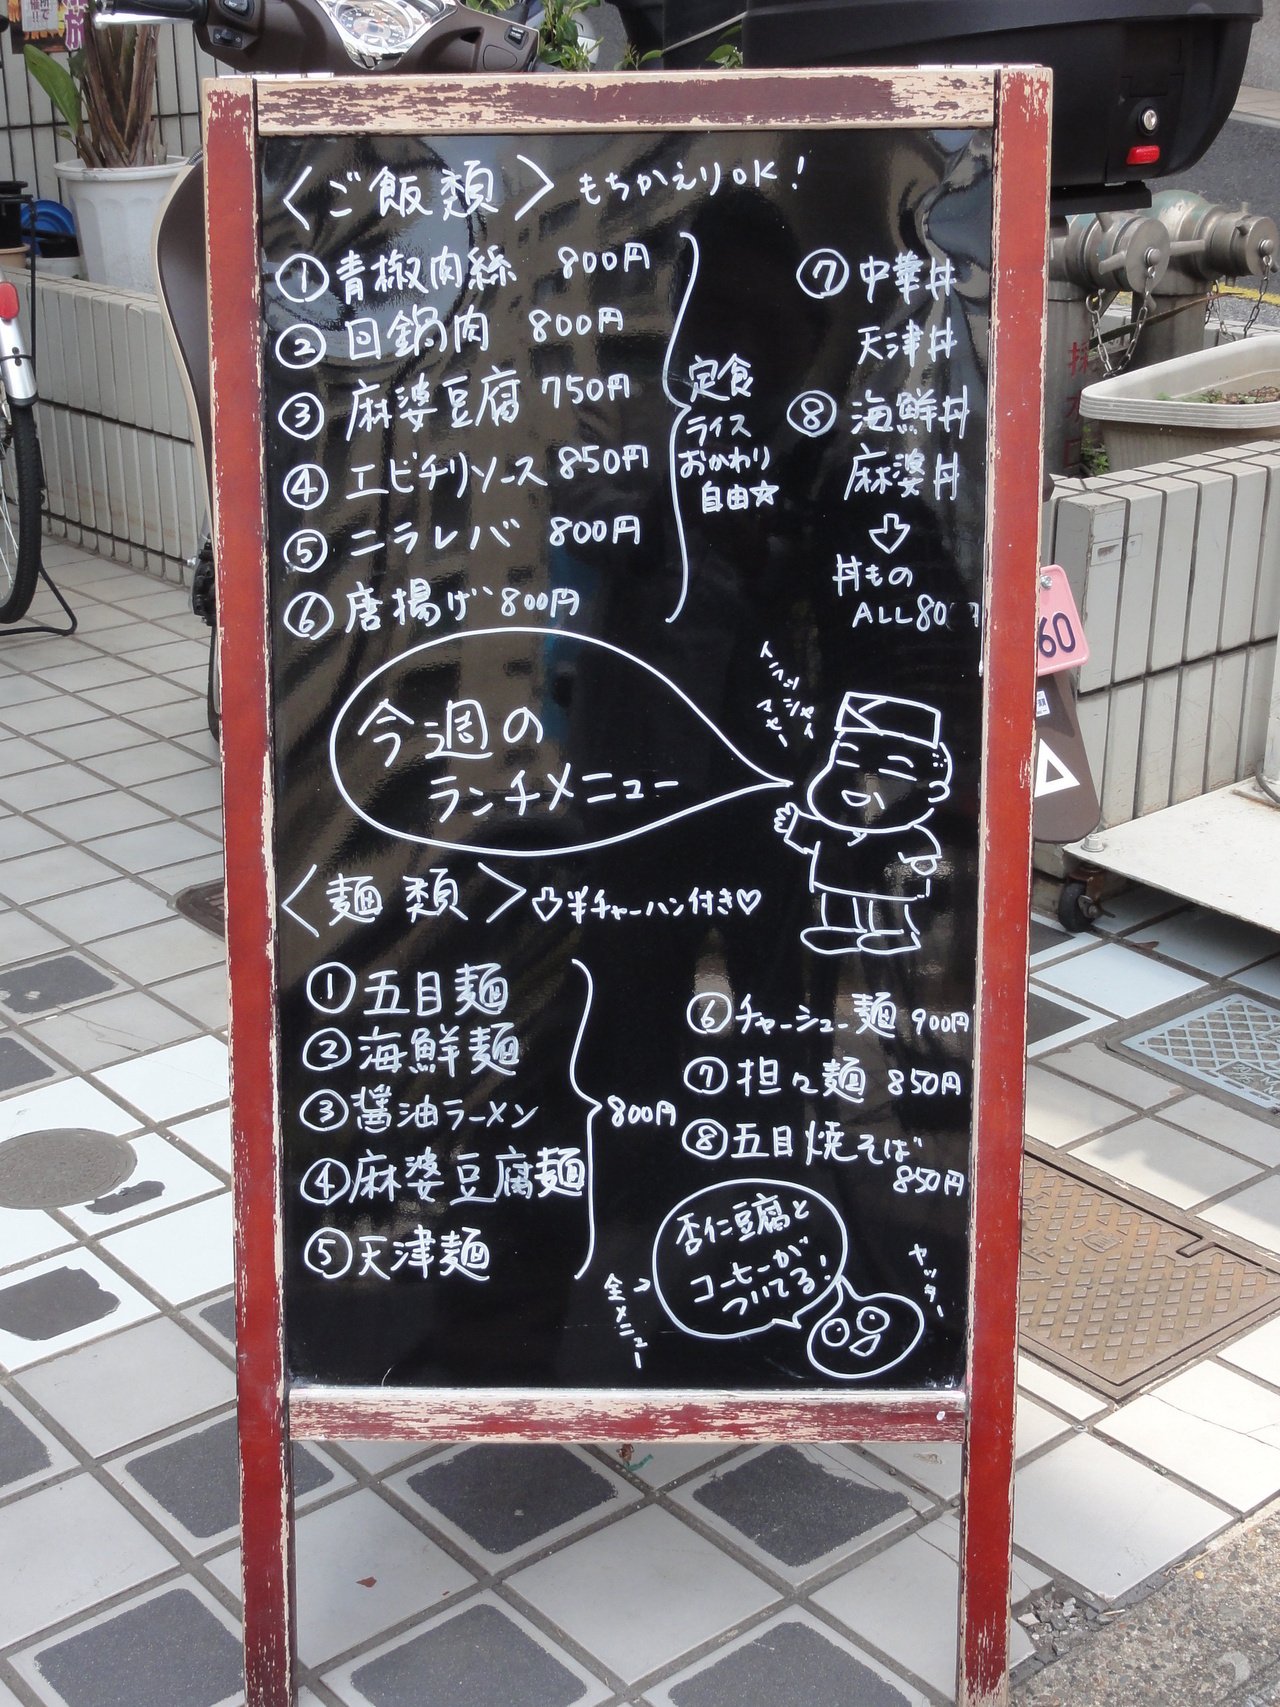 〈ご飯類〉もちかえりOK！
①青椒肉絲 800円
②回鍋肉 800円
③麻婆豆腐 750円
④エビチリソース 850円
⑤ニラレバ 800円
⑥唐揚げ 800円
定食
ライス
おかわり
自由☆
⑦中華丼
天津丼
⑧海鮮丼
麻婆丼
⇩
丼もの
ALL 80
今週の
ランチメニュー
イラッシャイ
マセー
〈麺類〉⇩半チャーハン付き♡
①五目麺
②海鮮麺
③醤油ラーメン
④麻婆豆腐麺
⑤天津麺
800円
⑥チャーシュー麺 900円
⑦担々麺 850円
⑧五目焼そば
850円
全メニュー
杏仁豆腐と
コーヒーが
ついてる！
ヤッター
60